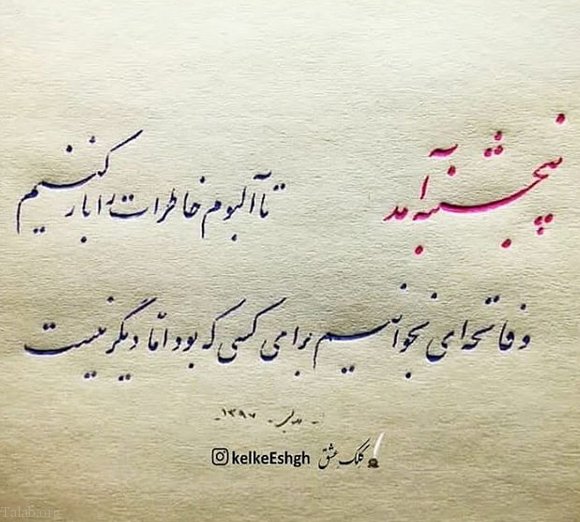 پنجشنبه آمد تا آلبوم خاطرات را باز کنیم
و فاتحه‌ای بخوانیم برای کسی که بود امّا دیگر نیست
۱۳۹۶
kelkeEshgh کلک عشق
Talab.org